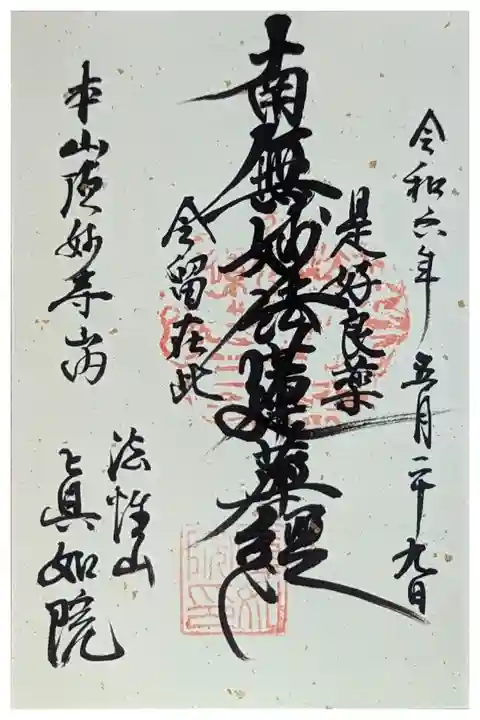 令和六年五月二十九日
是好良薬
南無妙法蓮華經
今留在此
本山頂妙寺山内
法性山
眞如院